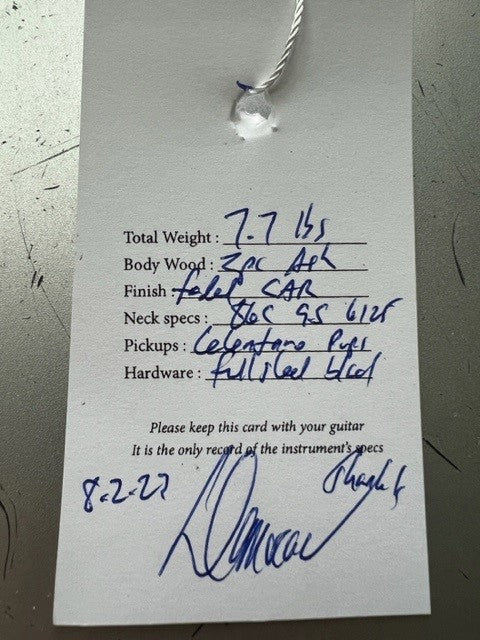 Total Weight : 7.7 lbs
Body Wood: 2pc Ash
Finish : faded CAR
Neck specs : 86C 9.5 6125
Pickups : Celentano Pups
Hardware : full steel
Please keep this card with your guitar
It is the only record of the instrument's specs
8-2-22 Thanks